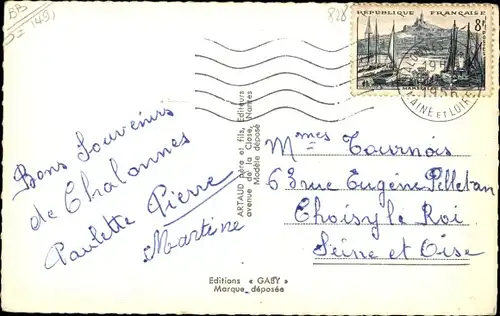 BB
(49)
828
RÉPUBLIQUE FRANÇAISE
8F
MAINE ET LOIRE
Bons Souvenirs
de Chalonnes
Paulette Pierre
Martine
ARTAUD père et fils, Editeurs
avenue de la Close, Nantes
Modèle déposé
Mmes Tournois
63 rue Eugène Pelletan
Choisy le Roi
Seine et Oise
Editions « GABY »
Marque déposée